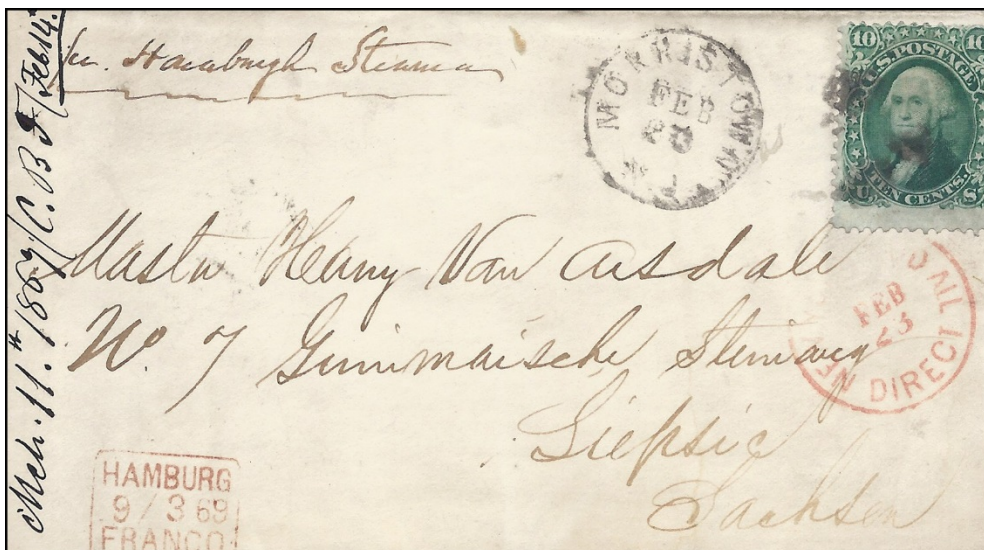 Mch. 11.th 1869 / C. B. F / Feb 14.
Per. Hamburgh Steamer
MORRISTOWN
FEB
N.J
10 10
U.S. POSTAGE
TEN CENTS.
U S
Master Henry Van Arsdale
No. 7 Grimmaische Steinweg
Liepsic
Sachsen
FEB
23
NEW DIRECT
HAMBURG
9 / 3 69
FRANCO